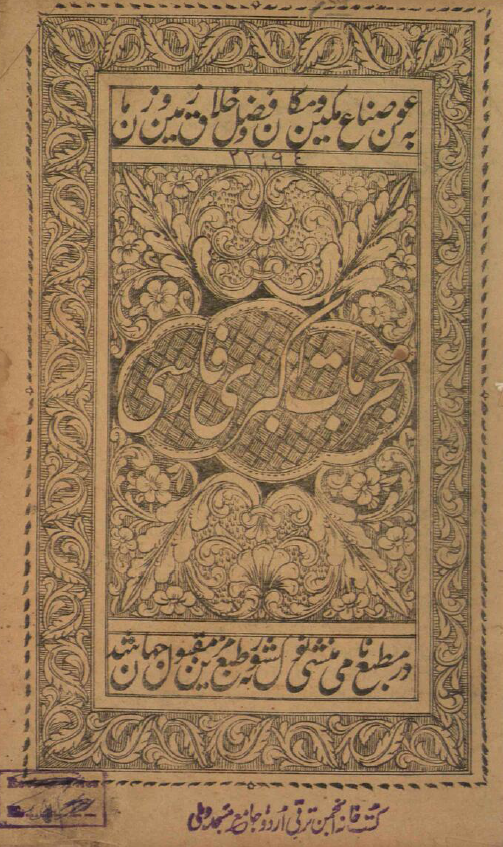 بہ عون صناع مکین و مکان و فضل خلاق زمین و زمان
۲۲۱۹٤
مجربات اکبری فارسی
در مطبع نامی منشی نولکشور طبع مزین مقبول جهان شد
کتب خانہ انجمن ترقی اردو جامع مسجد دہلی